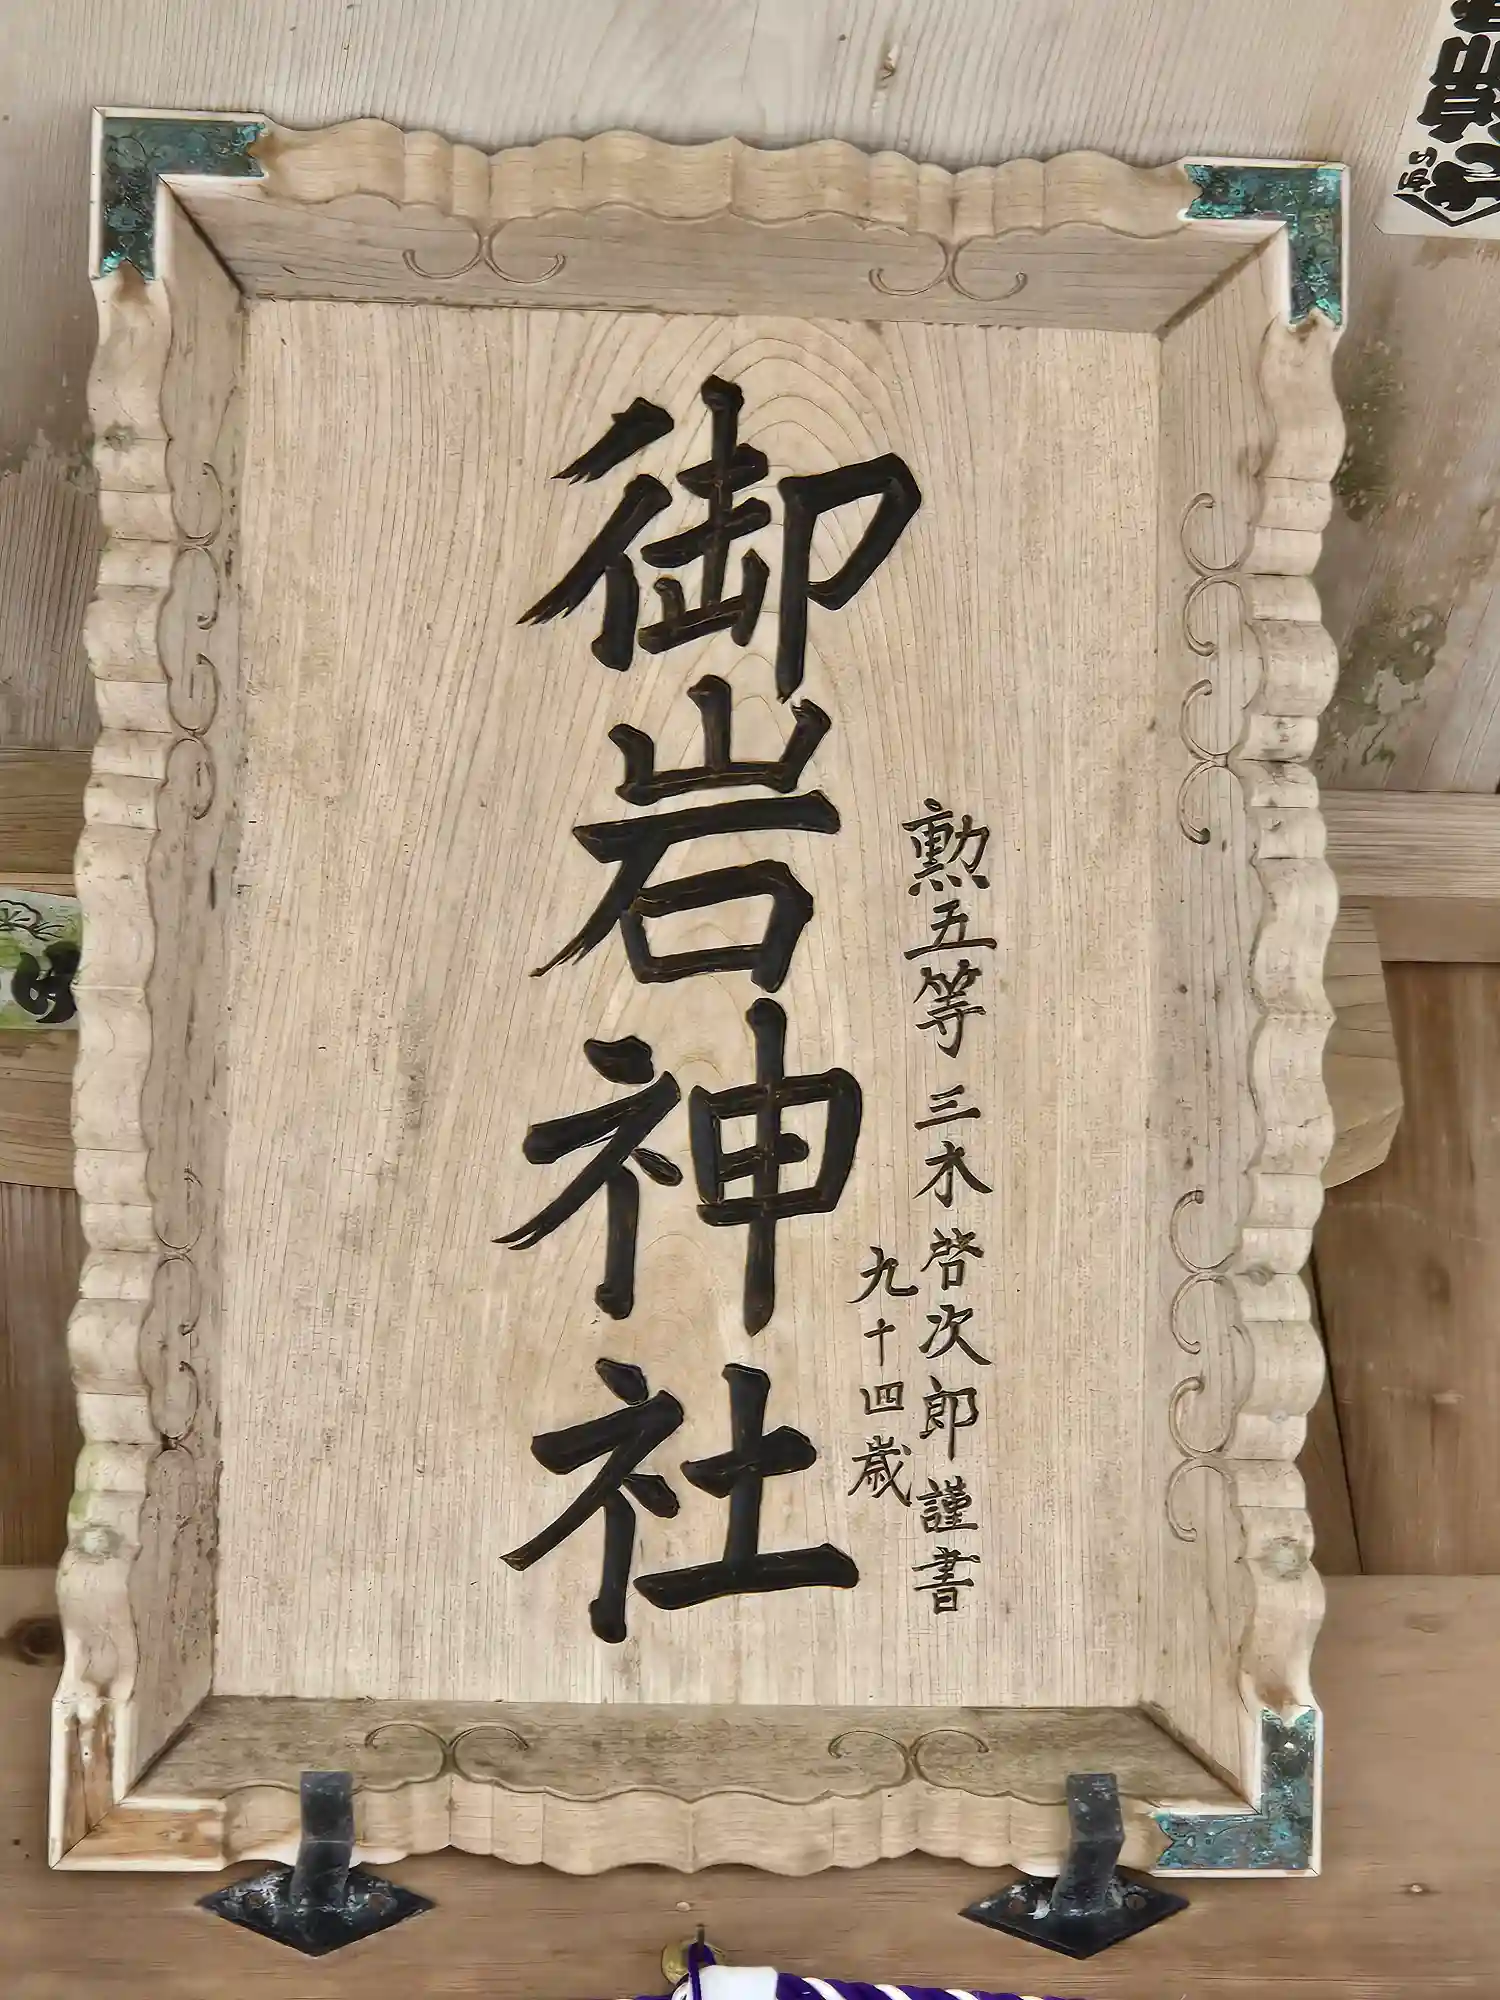 御岩神社
勲五等 三水啓次郎謹書
九十四歳